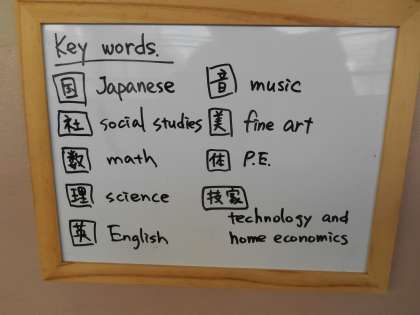 Key words.
国 Japanese
社 social studies
数 math
理 science
英 English
音 music
美 fine art
体 P.E.
技家
technology and
home economics